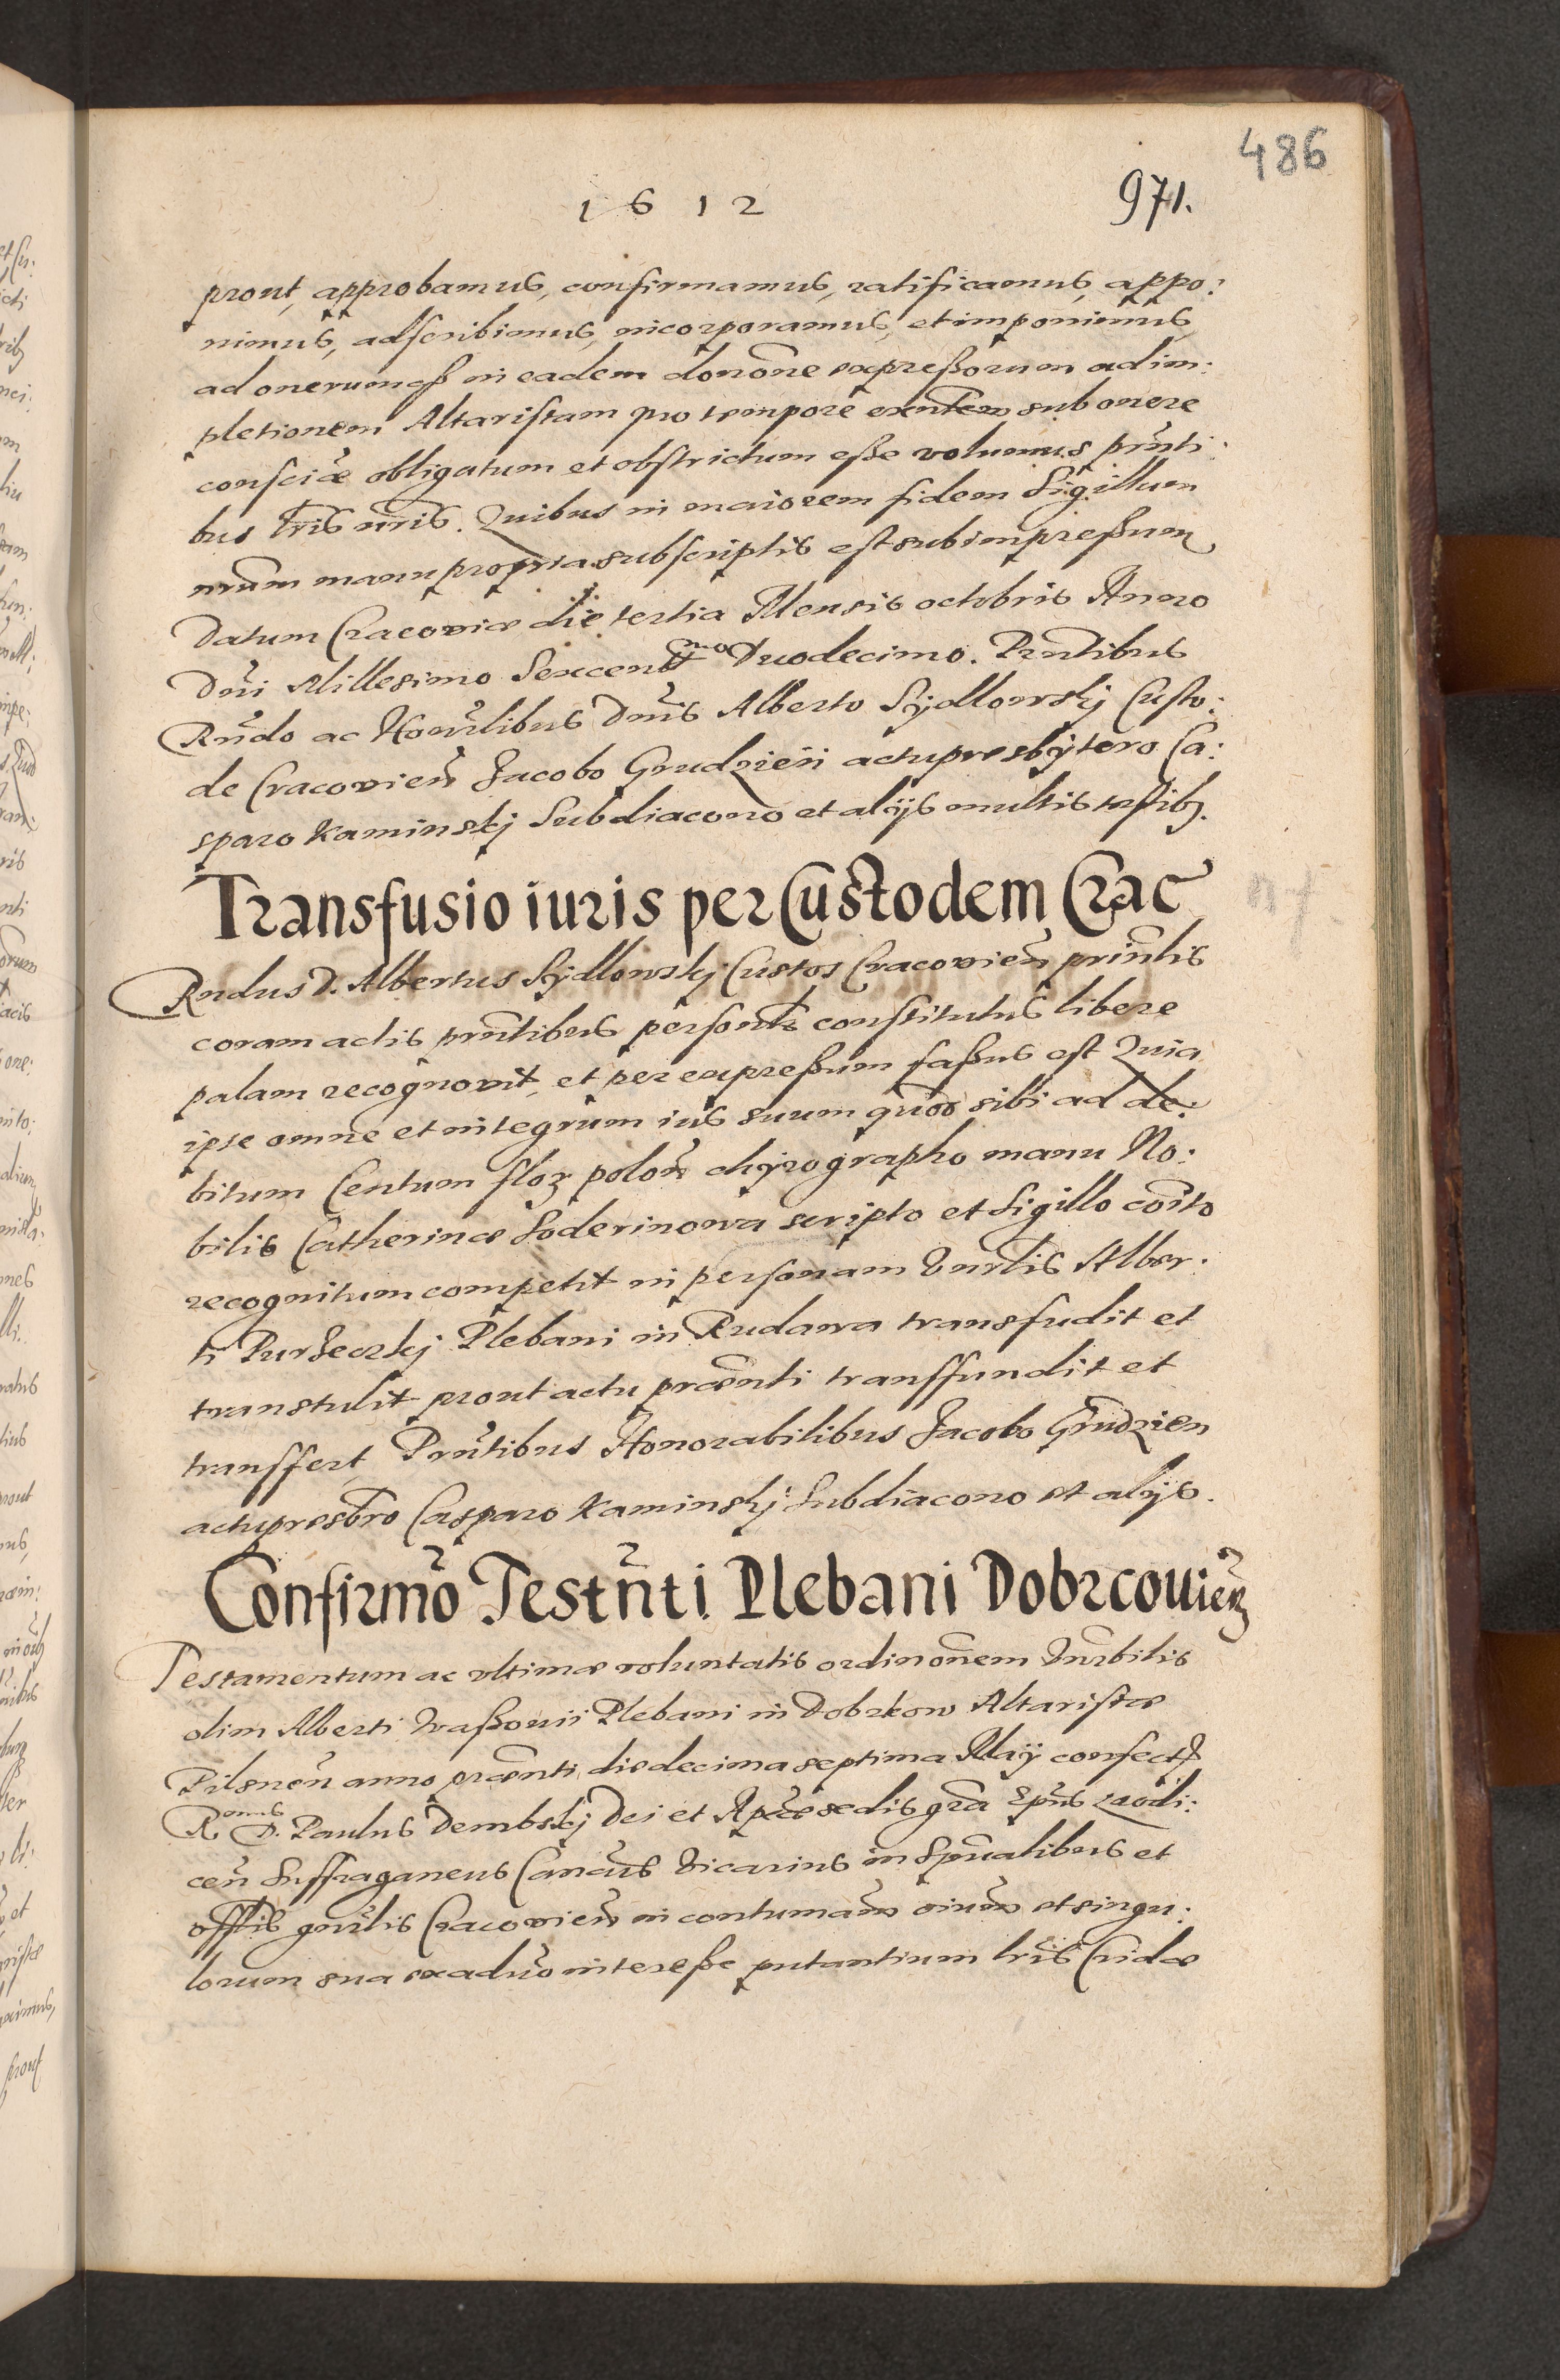 486
1612 971.
prout, approbamus, confirmamus, ratificamus, appo:
nimus, adscribimus, incorporamus, et imponimus,
ad onerumq3 in eadem donõne expreßorum adim:
pletionem Altaristam pro tempore exñtem sub onere
consciæ obligatum et obstrictum eße volumus prñti:
bus lris nris. Quibus in maiorem fidem Sigillum
nrum manu propria subscriptis est subimpreßum
Datum Cracoviæ die tertia Mensis octobris Anno
Dñi Millesimo Sexcentmo Duodecimo. Prñtibus
Rñdo ac Honrlibus Dnis Alberto Sÿdlowskj Custo:
de Cracovieñ Jacobo Grudzień actupresbÿtero Ca:
sparo Kaminskj Subdiacono et alijs multis testib3.
Transfusio iuris per Custodem Crac
Rndus D. Albertus Sÿdlowskj Custos Cracovieñ prinlis
coram actis prñtibus persontr constitutus libere
palam recognovit, et per expreßum faßus est Quia
ipse omne et integrum ius suum quod sibi ad de:
bitum Centum flor polon chÿrographo manu No:
bilis Catherinæ Soderinowa scripto et Sigillo coito
recognitum competit in personam Vnrlis Alber:
ti Purzeczkj Plebani in Rudawa transfudit et
transtulit prout actu præsnti transfundit et
transfert Prñtibus Honorabilibus Jacobo Grudzien
actupresbro Casparo Kaminskj Subdiacono et alijs.
Confirmõ Testñti Plebani Dobrcouień
Testamentum ac vltimæ voluntatis ordinõnem Vnrbilis
olim Alberti Waßowii Plebani in Dobrkow Altaristæ
Pilsneñ anno præsnti die decima septima Maij confect
R omus D. Paulus Dembskj Dei et Aplicæ sedis gra Epus Laodi:
ceñ Suffraganeus Cancus Vicarius in Spualibus et
offlis gnrlis Cracovieñ in contumam oium et singu:
lorum sua exaduo intereße putantium lris Cridæ